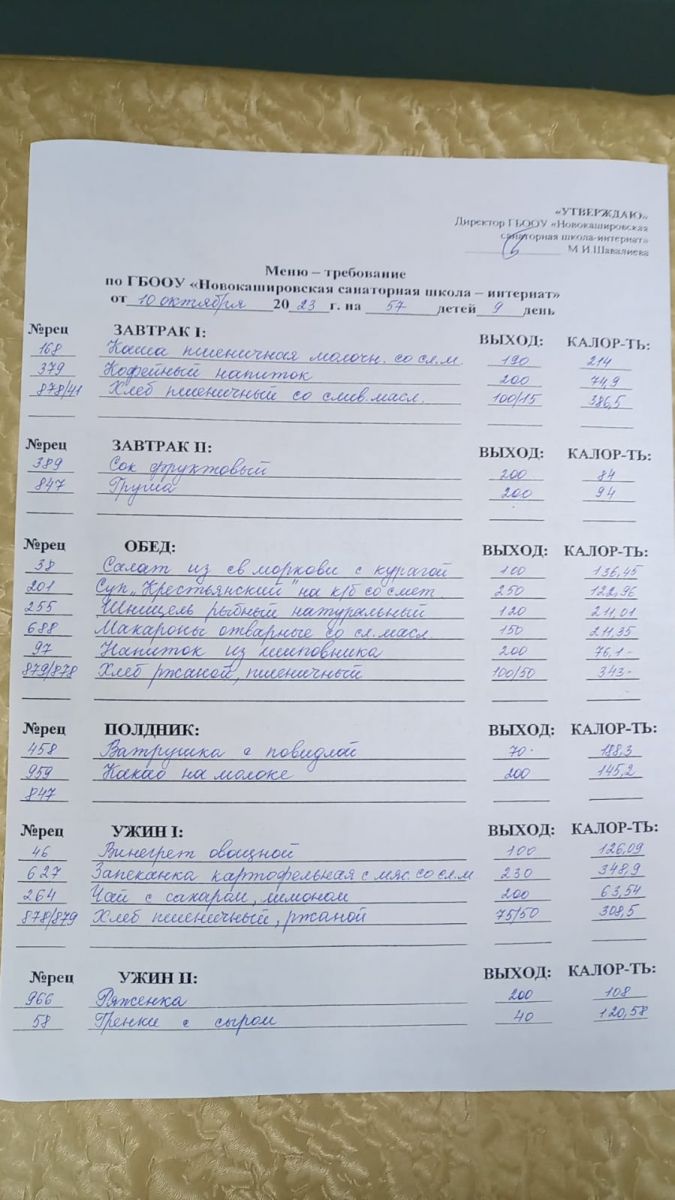 «УТВЕРЖДАЮ»
Директор ГБООУ «Новокашировская
санаторная школа-интернат»
М.И.Шавалиева
Меню – требование
по ГБООУ «Новокашировская санаторная школа – интернат»
от 10 октября 20 23 г. на 57 детей 9 день
№рец ЗАВТРАК I: ВЫХОД: КАЛОР-ТЬ:
168 Каша пшеничная молочн. со сл.м. 190 214
379 Кофейный напиток 200 74,9
878/41 Хлеб пшеничный со слив.масл. 100/15 386,5
№рец ЗАВТРАК II: ВЫХОД: КАЛОР-ТЬ:
389 Сок фруктовый 200 84
847 Груша 200 94
№рец ОБЕД: ВЫХОД: КАЛОР-ТЬ:
38 Салат из св моркови с курагой 100 136,45
201 Суп „Крестьянский" на к/б со смет 250 122,96
255 Шницель рыбный натуральный 120 211,01
688 Макароны отварные со сл.масл 150 211,35
97 Напиток из шиповника 200 76,1-
879/878 Хлеб ржаной, пшеничный 100/50 343-
№рец ПОЛДНИК: ВЫХОД: КАЛОР-ТЬ:
458 Ватрушка с повидлой 70- 188,3
959 Какао на молоке 200 145,2
847
№рец УЖИН I: ВЫХОД: КАЛОР-ТЬ:
46 Винегрет овощной 100 126,09
627 Запеканка картофельная с мяс. со сл.м 230 348,9
264 Чай с сахаром, лимоном 200 63,54
878/879 Хлеб пшеничный, ржаной 75/50 308,5
№рец УЖИН II: ВЫХОД: КАЛОР-ТЬ:
966 Ряженка 200 108
58 Гренки с сыром 40 120,58